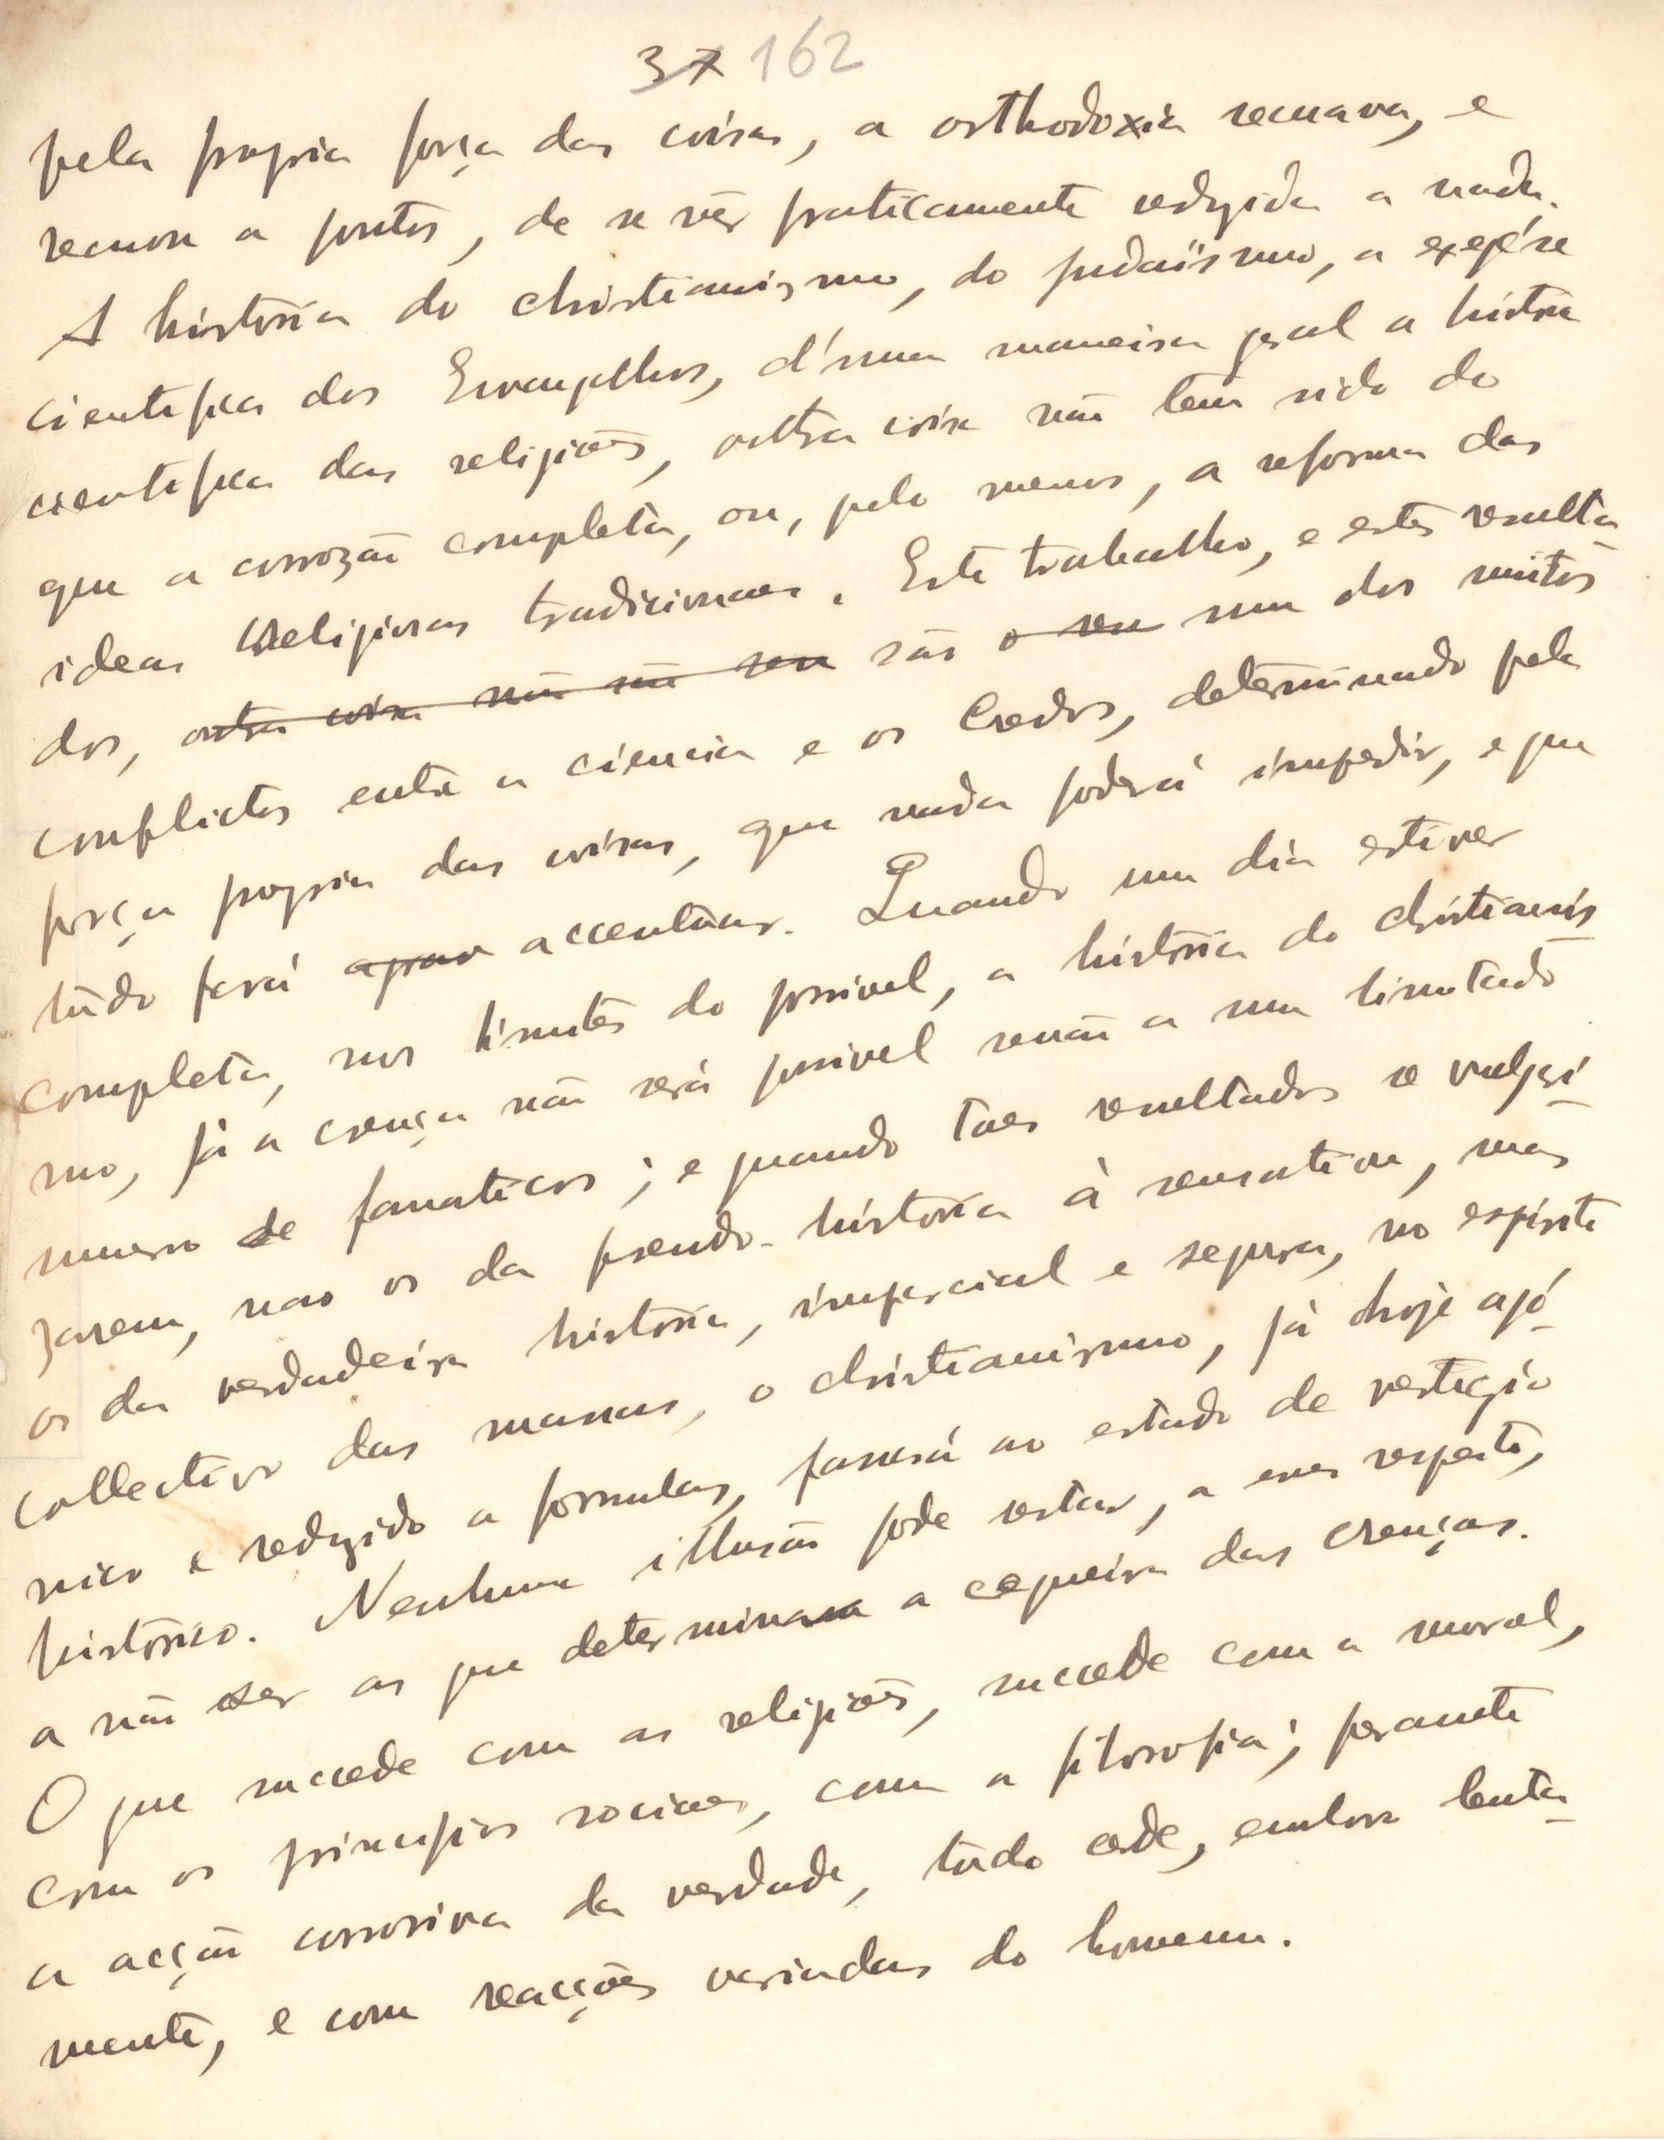 37 162
pela propria força das coisas, a orthodoxia recuava, e
recuou a pontos, de se vêr praticamente redzida a nada.
A história do christianismo, do judaïsmo, a exegése
cientifica dos Evangelhos, d'uma maneira geral a históra
cientifica das religiões, outra coisa não tem sido do
que a corrozão completa, ou, pelo menos, a reforma das
ideas religiosas tradicionaes. Este trabalho, e estes resulta-
dos, outra coisa não são senão são o seu um dos muitos
conflictos entre a ciencia e os Credos, determinado pela
força propria das coisas, que nada poderá impedir, e que
tudo fará agrav accentuar. Quando um dia estiver
completa, nos limites do possivel, a história do christianis
mo, já a crença não será possivel senão a um limitado
numero de fanaticos; e quando taes resultados se vulgri-
zarem, nao os da pseudo-história à sensation, mas
os da verdadeira história, imparcial e segura, no espirito
collectivo das massas, o christianismo, já hoje agó-
nico e redzido a formulas, passará ao estado de vestigio
histórico. Nenhuma illusão pode restar, a esse respeito,
a não ser as que determina a cegueira das crenças.
O que succede com as religiões, succede com a moral,
com os principios sociaes, com a filosofia; perante
a acção corrosiva da verdade, tudo cede, embora lenta-
mente, e com reacções variadas do homem.